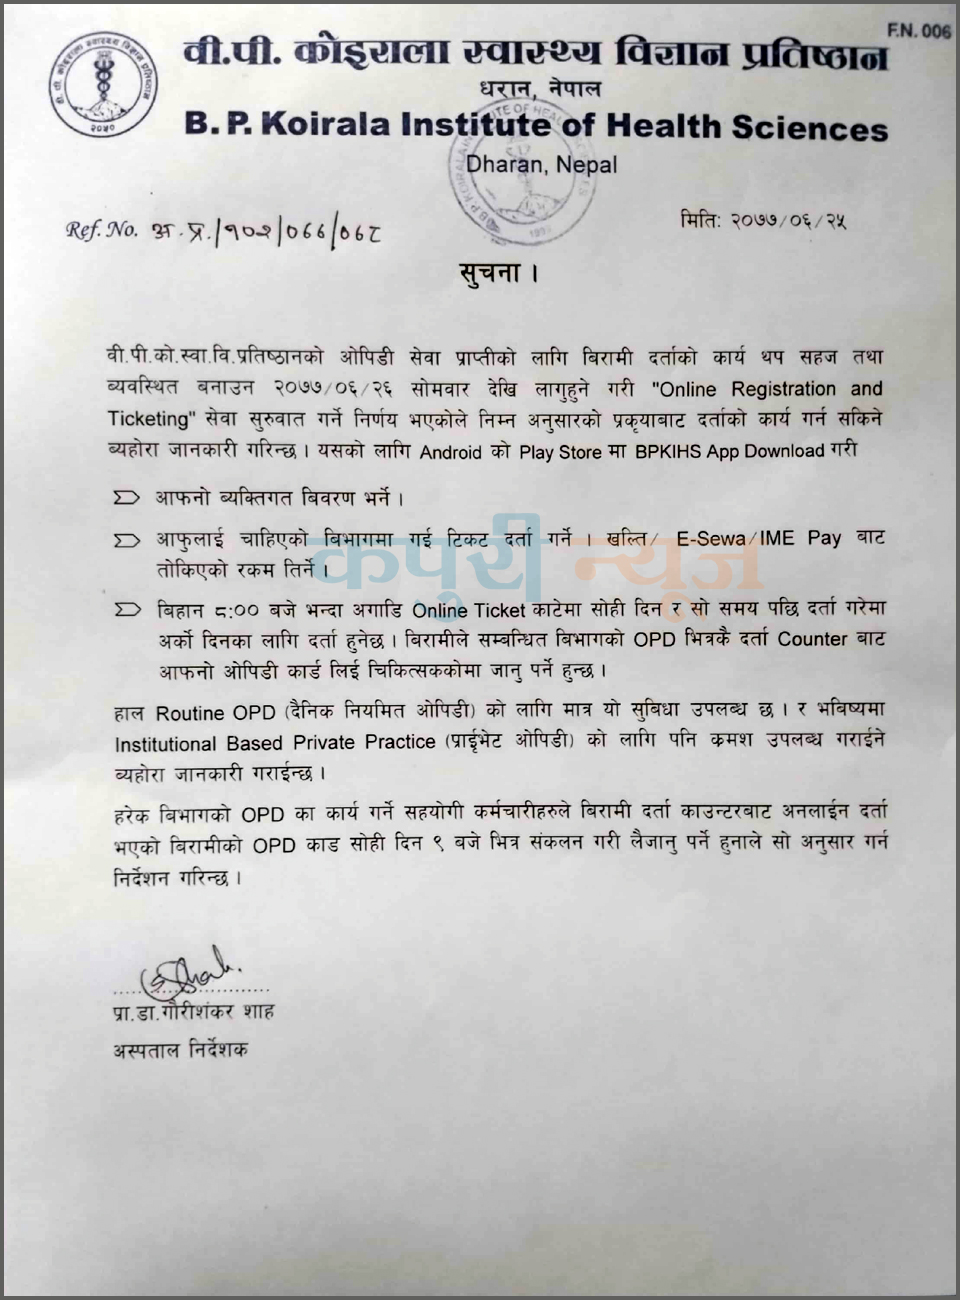 F.N. 006
वी.पी. कोइराला स्वास्थ्य विज्ञान प्रतिष्ठान
धरान, नेपाल
B. P. Koirala Institute of Health Sciences
Dharan, Nepal
Ref. No. अ.प्र./१०२/०७७/०७८
मिति: २०७७/०६/२५
सुचना ।
वी.पी.को.स्वा.वि.प्रतिष्ठानको ओपिडी सेवा प्राप्तीको लागि बिरामी दर्ताको कार्य थप सहज तथा
ब्यवस्थित बनाउन २०७७/०६/२६ सोमवार देखि लागुहुने गरी "Online Registration and
Ticketing" सेवा सुरुवात गर्ने निर्णय भएकोले निम्न अनुसारको प्रकृयाबाट दर्ताको कार्य गर्न सकिने
ब्यहोरा जानकारी गरिन्छ । यसको लागि Android को Play Store मा BPKIHS App Download गरी
आफनो ब्यक्तिगत बिवरण भर्ने ।
आफुलाई चाहिएको बिभागमा गई टिकट दर्ता गर्ने । खल्ति/ E-Sewa/IME Pay बाट
तोकिएको रकम तिर्ने ।
कपुरी न्यूज
बिहान ८:०० बजे भन्दा अगाडि Online Ticket काटेमा सोही दिन र सो समय पछि दर्ता गरेमा
अर्को दिनका लागि दर्ता हुनेछ । बिरामीले सम्बन्धित बिभागको OPD भित्रकै दर्ता Counter बाट
आफनो ओपिडी कार्ड लिई चिकित्सककोमा जानु पर्ने हुन्छ ।
हाल Routine OPD (दैनिक नियमित ओपिडी) को लागि मात्र यो सुबिधा उपलब्ध छ । र भबिष्यमा
Institutional Based Private Practice (प्राईभेट ओपिडी) को लागि पनि क्रमश उपलब्ध गराईने
ब्यहोरा जानकारी गराईन्छ ।
हरेक बिभागको OPD का कार्य गर्ने सहयोगी कर्मचारीहरुले बिरामी दर्ता काउन्टरबाट अनलाईन दर्ता
भएको बिरामीको OPD काड सोही दिन ९ बजे भित्र संकलन गरी लैजानु पर्ने हुनाले सो अनुसार गर्न
निर्देशन गरिन्छ ।
प्रा.डा.गौरीशंकर शाह
अस्पताल निर्देशक